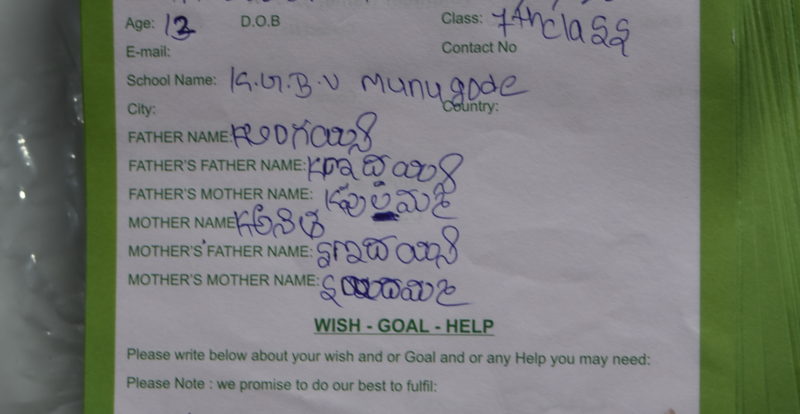 Age: 13 D.O.B Class: 7th class
E-mail: Contact No
School Name: K.G.B.V Munugode
City: Country:
FATHER NAME:
FATHER'S FATHER NAME:
FATHER'S MOTHER NAME:
MOTHER NAME
MOTHER'S FATHER NAME:
MOTHER'S MOTHER NAME:
WISH - GOAL - HELP
Please write below about your wish and or Goal and or any Help you may need:
Please Note : we promise to do our best to fulfil: